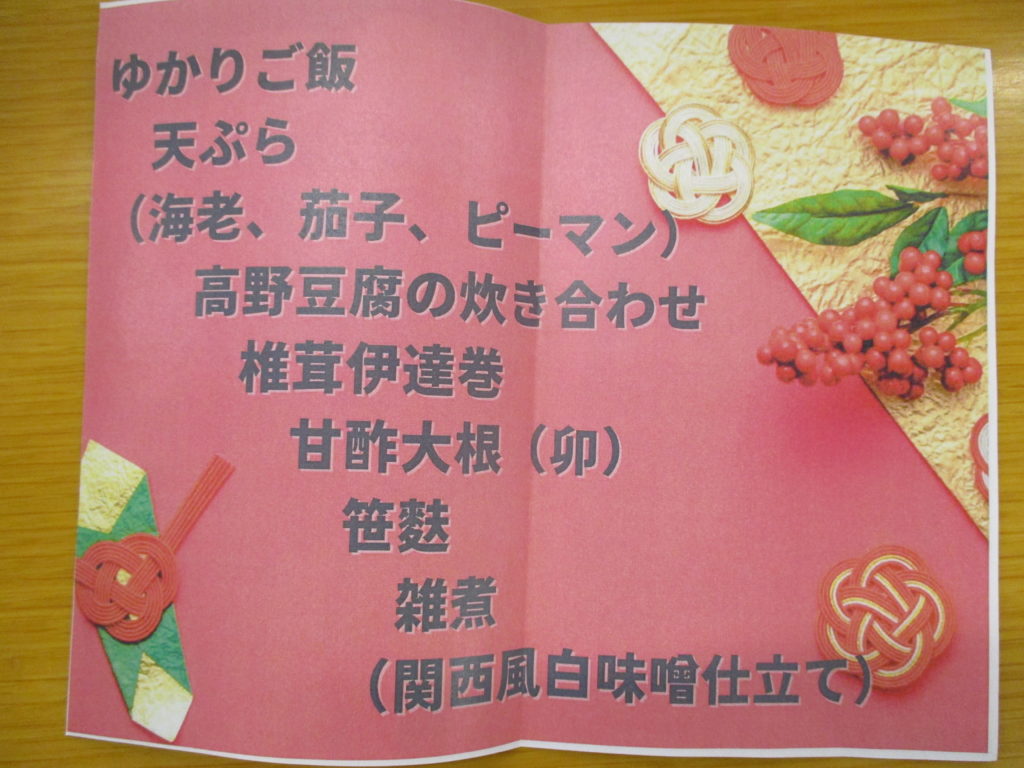 ゆかりご飯
天ぷら
（海老、茄子、ピーマン）
高野豆腐の炊き合わせ
椎茸伊達巻
甘酢大根（卯）
笹麩
雑煮
（関西風白味噌仕立て）